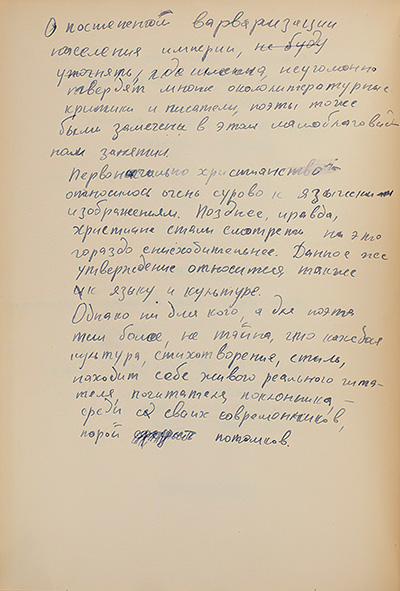 О постепенной варваризации
населения империи, не буду
уточнять, где именно, неугомонно
твердят многие окололитературные
критики и писатели, поэты тоже
были замечены в этом малоблаговид-
ном занятии.
Первоначально христианство
относилось очень сурово к языческим
изображениям. Позднее, правда,
христиане стали смотреть на это
гораздо снисходительнее. Данное же
утверждение относится также
к языку и культуре.
Однако ни для кого, а для поэта
тем более, не тайна, что каждая
культура, стихотворение, стиль,
находит себе живого реального чита-
теля, почитателя, поклонника, –
среди своих современников,
порой потомков.